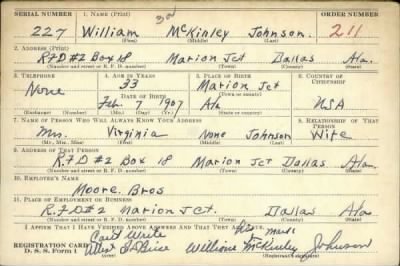 SERIAL NUMBER 1. NAME (Print) ORDER NUMBER
227 William McKinley Johnson. 211
(First) (Middle) (Last)
2. ADDRESS (Print)
RFD #2 Box 18 Marion Jct Dallas Ala.
(Number and street or R. F. D. number) (Town) (County) (State)
3. TELEPHONE 4. AGE IN YEARS 5. PLACE OF BIRTH 6. COUNTRY OF CITIZENSHIP
None 33 Marion Jct
DATE OF BIRTH (Town or county)
Feb. 7 1907 Ala USA
(Exchange) (Number) (Mo.) (Day) (Yr.) (State or country)
7. NAME OF PERSON WHO WILL ALWAYS KNOW YOUR ADDRESS 8. RELATIONSHIP OF THAT PERSON
Mrs. Virginia None Johnson Wife
(Mr., Mrs., Miss) (First) (Middle) (Last)
9. ADDRESS OF THAT PERSON
RFD #2 Box 18 Marion Jct Dallas Ala.
(Number and street or R. F. D. number) (Town) (County) (State)
10. EMPLOYER'S NAME
Moore Bros
11. PLACE OF EMPLOYMENT OR BUSINESS
R.F.D #2 Marion Jct. Dallas Ala.
(Number and street or R. F. D. number) (Town) (County) (State)
I AFFIRM THAT I HAVE VERIFIED ABOVE ANSWERS AND THAT THEY ARE TRUE.
Can't Write his mark
REGISTRATION CARD William McKinley Johnson
D. S. S. Form 1